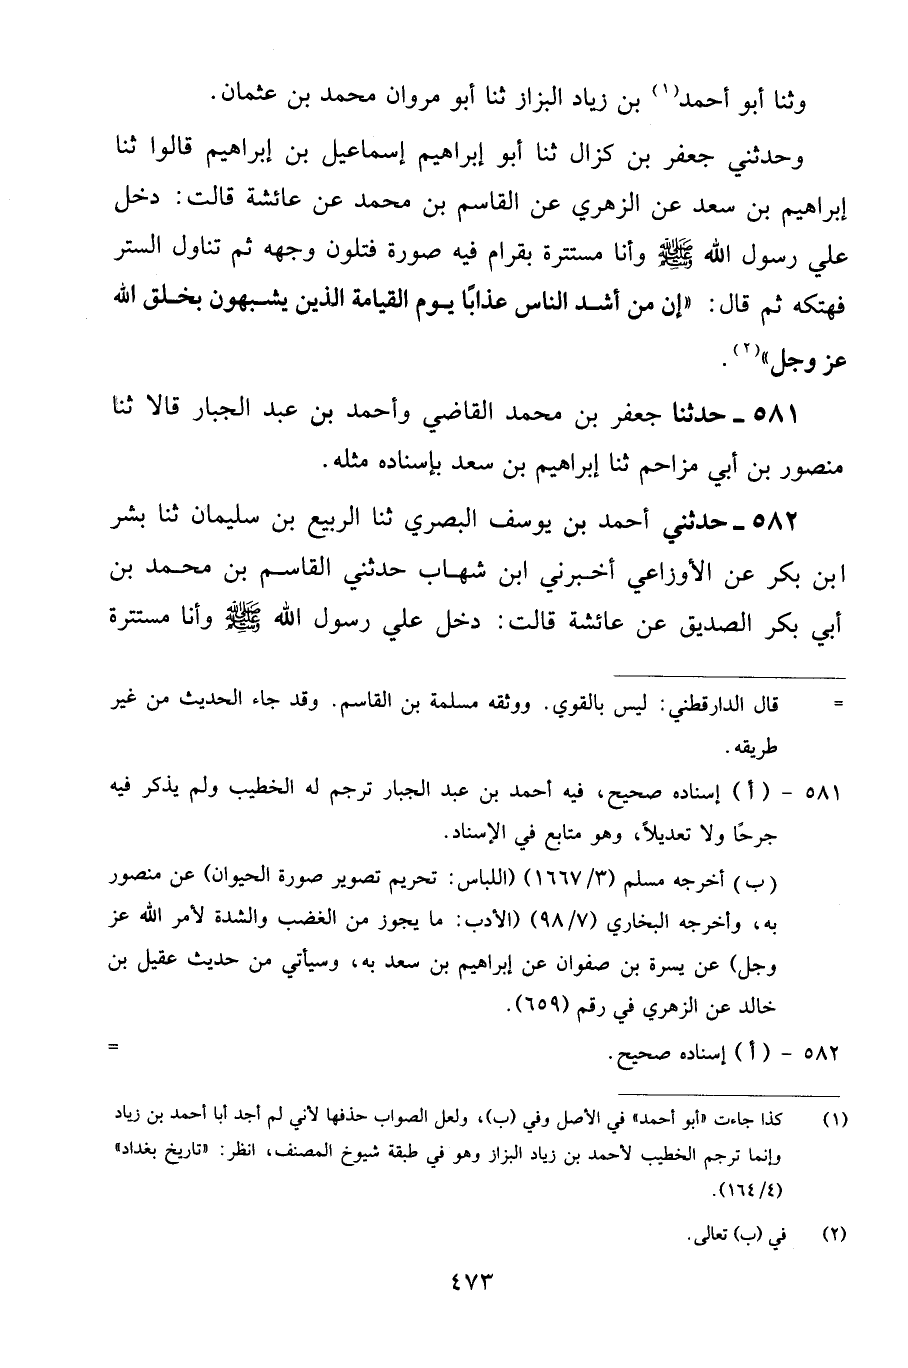 وثنا أبو أحمد(١) بن زياد البزاز ثنا أبو مروان محمد بن عثمان.
وحدثني جعفر بن كزال ثنا أبو إبراهيم إسماعيل بن إبراهيم قالوا ثنا
إبراهيم بن سعد عن الزهري عن القاسم بن محمد عن عائشة قالت: دخل
علي رسول الله ﷺ وأنا مستترة بقرام فيه صورة فتلون وجهه ثم تناول الستر
فهتكه ثم قال: «إن من أشد الناس عذابًا يوم القيامة الذين يشبهون بخلق الله
عز وجل»(٢).
٥٨١ ـ حدثنا جعفر بن محمد القاضي وأحمد بن عبد الجبار قالا ثنا
منصور بن أبي مزاحم ثنا إبراهيم بن سعد بإسناده مثله.
٥٨٢ ـ حدثني أحمد بن يوسف البصري ثنا الربيع بن سليمان ثنا بشر
ابن بكر عن الأوزاعي أخبرني ابن شهاب حدثني القاسم بن محمد بن
أبي بكر الصديق عن عائشة قالت: دخل علي رسول الله ﷺ وأنا مستترة
= قال الدارقطني: ليس بالقوي. ووثقه مسلمة بن القاسم. وقد جاء الحديث من غير
طريقه.
٥٨١ - (أ) إسناده صحيح، فيه أحمد بن عبد الجبار ترجم له الخطيب ولم يذكر فيه
جرحًا ولا تعديلاً، وهو متابع في الإسناد.
(ب) أخرجه مسلم (١٦٦٧/٣) (اللباس: تحريم تصوير صورة الحيوان) عن منصور
به، وأخرجه البخاري (٩٨/٧) (الأدب: ما يجوز من الغضب والشدة لأمر الله عز
وجل) عن يسرة بن صفوان عن إبراهيم بن سعد به، وسيأتي من حديث عقيل بن
خالد عن الزهري في رقم (٦٥٩).
٥٨٢ - (أ) إسناده صحيح. =
(١) كذا جاءت «أبو أحمد» في الأصل وفي (ب)، ولعل الصواب حذفها لأني لم أجد أبا أحمد بن زياد
وإنما ترجم الخطيب لأحمد بن زياد البزاز وهو في طبقة شيوخ المصنف، انظر: «تاريخ بغداد»
(١٦٤/٤).
(٢) في (ب) تعالى.
٤٧٣